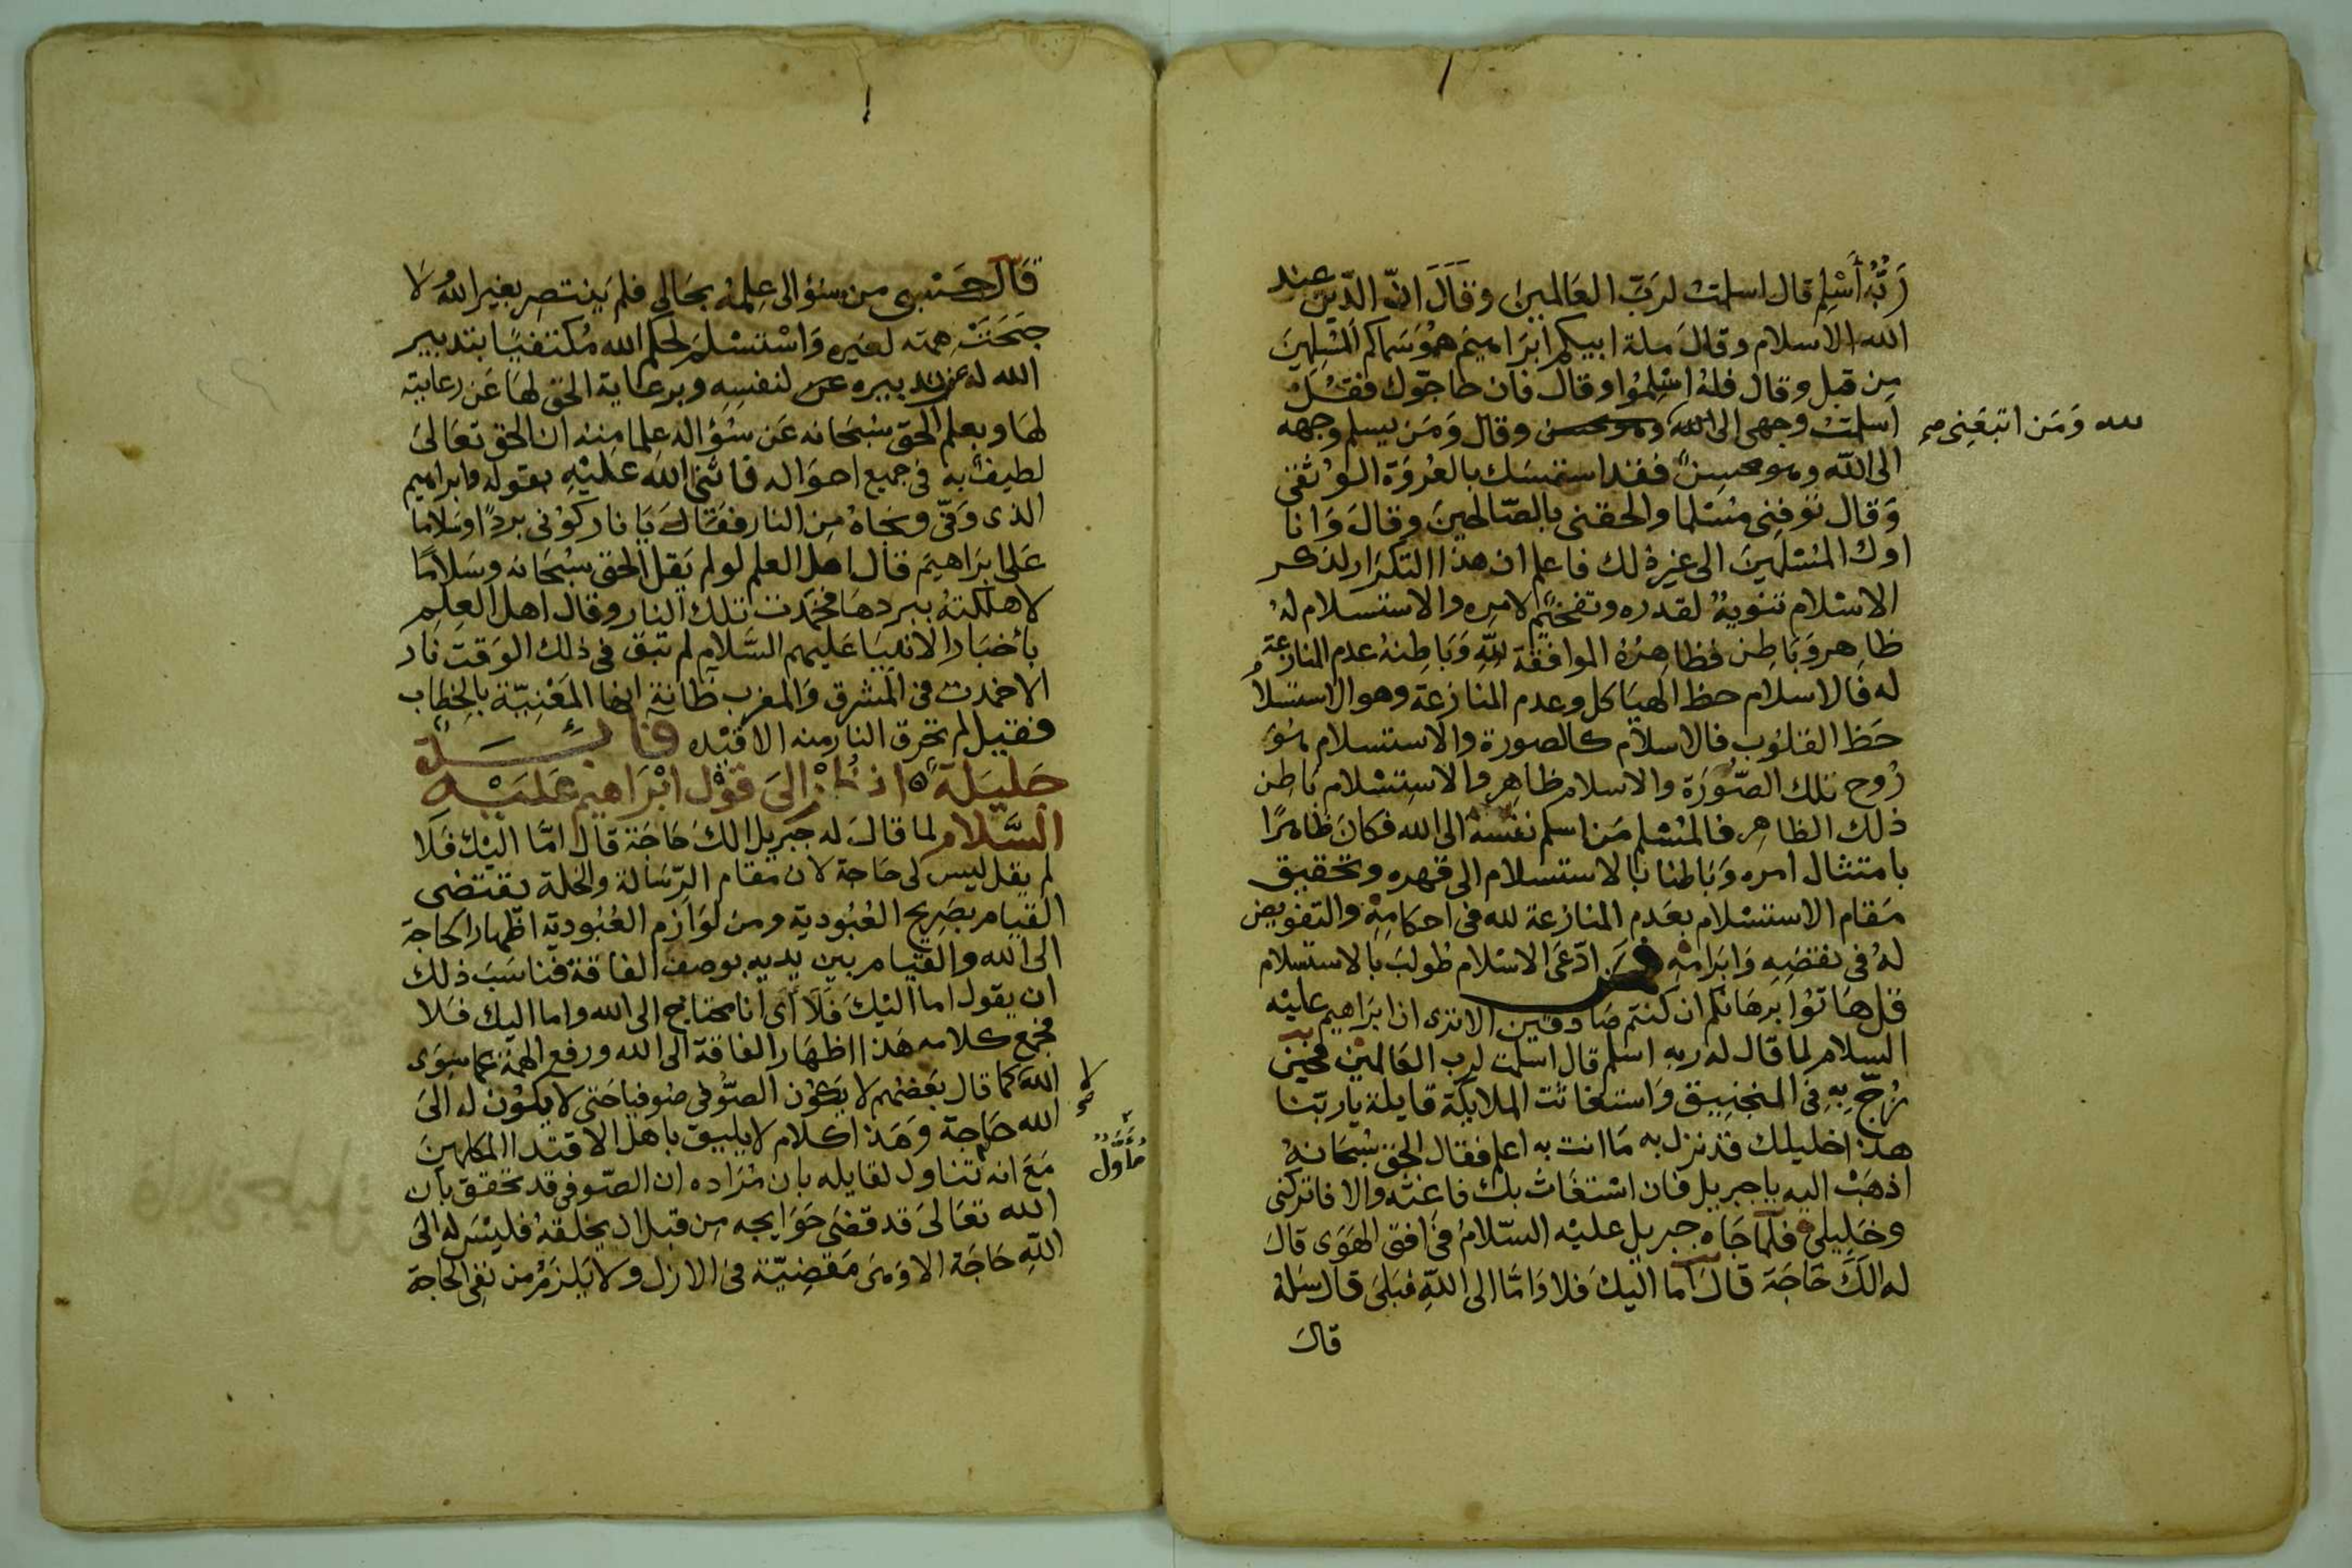 رَبُّهُ أَسْلِم قال اسلمت لرَبّ العَالمينَ وقَالَ انّ الدّين عند
الله الاسلام وقالَ ملة ابيكم ابرَاهيمَ هوَ سَماكم المسْلِمينَ
مِن قبل وقال فلهُ اسْلِمُوا وقال فان حاجّوك فقُلْ
اسلمت وجهى الى الله وهو محسن وقال وَمَن يسلم وجهه
لله وَمَن اتبعَنِى صح
الى الله وهو محسِنٌ فقد استمسَك بالعُروَة الوُثقى
وَقال توفنِى مُسْلما والحقنى بالصّالحينَ وقالَ وَانا
اول المُسْلمينَ الى غيرِ ذلك فاعلم ان هذا التكرَار لذكر
الاسْلام تنويهٌ لقدره وتفخيمٌ لامره والاستسلام لهُ
ظاهر وَبَاطِن فظاهِرُهُ الموافقة للّهِ وَبَاطِنهُ عدم المنازعة
له فالاسلام حظ الهيَاكل وعدم المنازعة وهو الاستسلامُ
حَظ القلوُب فالاسلام كالصورة والاستسلام هُوَ
رُوح تلك الصّورَة والاسلام ظاهِر والاستِسْلام بَاطِن
ذلك الظاهِر فالمُسْلم مَن اسلم نفسَهُ الى الله فكانَ ظاهرًا
بامتثال امره وَبَاطنا بالاستسلام الى قهره وتحقيق
مَقام الاستسْلام بعَدم المنازعة لله فى احكامِهِ والتفويض
لهُ فى نقضِهِ وَابرَامهِ فمَن ادّعَى الاسْلام طُولبَ بالاستسلام
قل هَاتوُا برهَانكم ان كنتم صَادقين الا ترى ان ابرَاهيم عليْه
السلام لما قال له ربه اسلم قال اسلمت لرب العَالمين فحين
زُجّ بهِ فى المنجنِيق وَاستغاثت الملايكة قايلة يا ربّنا
هذا خليلك قد نزل به مَا انت به اعلم فقال الحق سُبحَانهُ
اذهَبْ اليه يا جبريل فان اسْتغَاث بك فاغثه والا فاتركنى
وخَلِيلى فلمّا جَاه جبريل عليْه السّلامُ فى افق الهَوَى قالَ
له الَكَ حَاجَة قالَ اما اليكَ فلا وَامّا الى اللّهِ فبَلَى قال سَلهُ
قال
قَالَ حَسْبى من سؤالى عِلمُهُ بحَالى فلم يَنتصر بغير الله ولا
جنحَتْ همته لغيره وَاسْتسْلمَ لحكم الله مُكتفيًا بتدبير
الله له عن تدبيره لنفسِهِ وبرعاية الحق لهَا عَن رعايته
لهَا وبعلم الحق سُبحَانه عَن سُؤاله علما مِنه ان الحق تعَالىَ
لطيفٌ به فى جميع احوَاله فاثنى الله عليْهِ بقوله وابراهيم
الذى وَفىّ ونجاهُ مِن النار فقالَ يَا نار كوُنى بردًا وسَلاما
عَلى ابرَاهيَم قال اهل العلم لو لم يَقل الحق سُبْحَانه وسَلامًا
لاهلكتهُ ببردهَا فخمَدت تلك النار وقال اهل العِلم
بأخبَار الانبيَا عَليهم السَّلام لم تبق فى ذلك الوَقت نار
الا خمدت فى المشرق وَالمغرب ظانة انها المَعْنِيّة بالخِطاب
فقيل لم تحرق النار منه الا قَيْده فائدة
جَليلَةٌ ه اُنظُرْ الىَ قوْل ابْرَاهيم عَليَهِ
السَّلام لما قالَ له جبريل الكَ حَاجَة قال امّا اليْكَ فَلَا
لم يقل ليس لى حَاجة لان مَقام الرّسَالة والخلة يقتضى
القيَام بصَريح العُبُوديّة ومن لوَازم العُبُوديّة اظهار الحاجة
الى الله والقيَام بين يديه بوصف الفاقة فناسَبَ ذلك
ان يقول اما اليْكَ فَلَا أى أنا محتاج الى الله واما اليك فلا
فجمع كلامه هَذا اظهَار الفاقة الى الله ورفع الهمة عما سِوَى
الله كما قال بعَضهُم لا يَكوُن الصّوُفى صُوفيا حَتى لا يكوُن له الىَ
لا صح
الله حَاجة وَهَذا كلام لا يليق باهل الاقتدا المكملينَ
مَعَ انه تناول لقايله بان مُرَاده ان الصّوفى قد تحقق بان
مُأَوَّل
الله تعَالىَ قد قضَى حَوَايجه من قبل ان يخلقهُ فليْسَ له الىَ
اللهِ حَاجَة الا وَهى مَقضِيّة فى الازل ولا يَلزمُ من نفى الحاجة